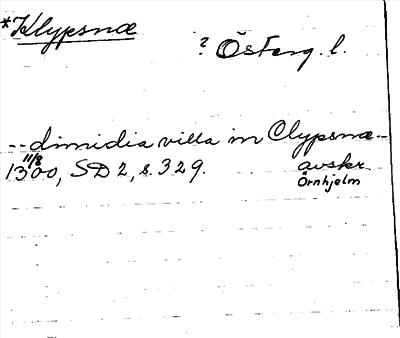 *Klypsnæ
? Österg. l.
-- dimidia villa in Clypsnæ --
11/8
1300, SD 2, s. 329. avskr
Örnhjelm